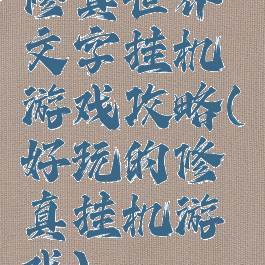 修真世界
文字挂机
游戏攻略(
好玩的修
真挂机游
戏)